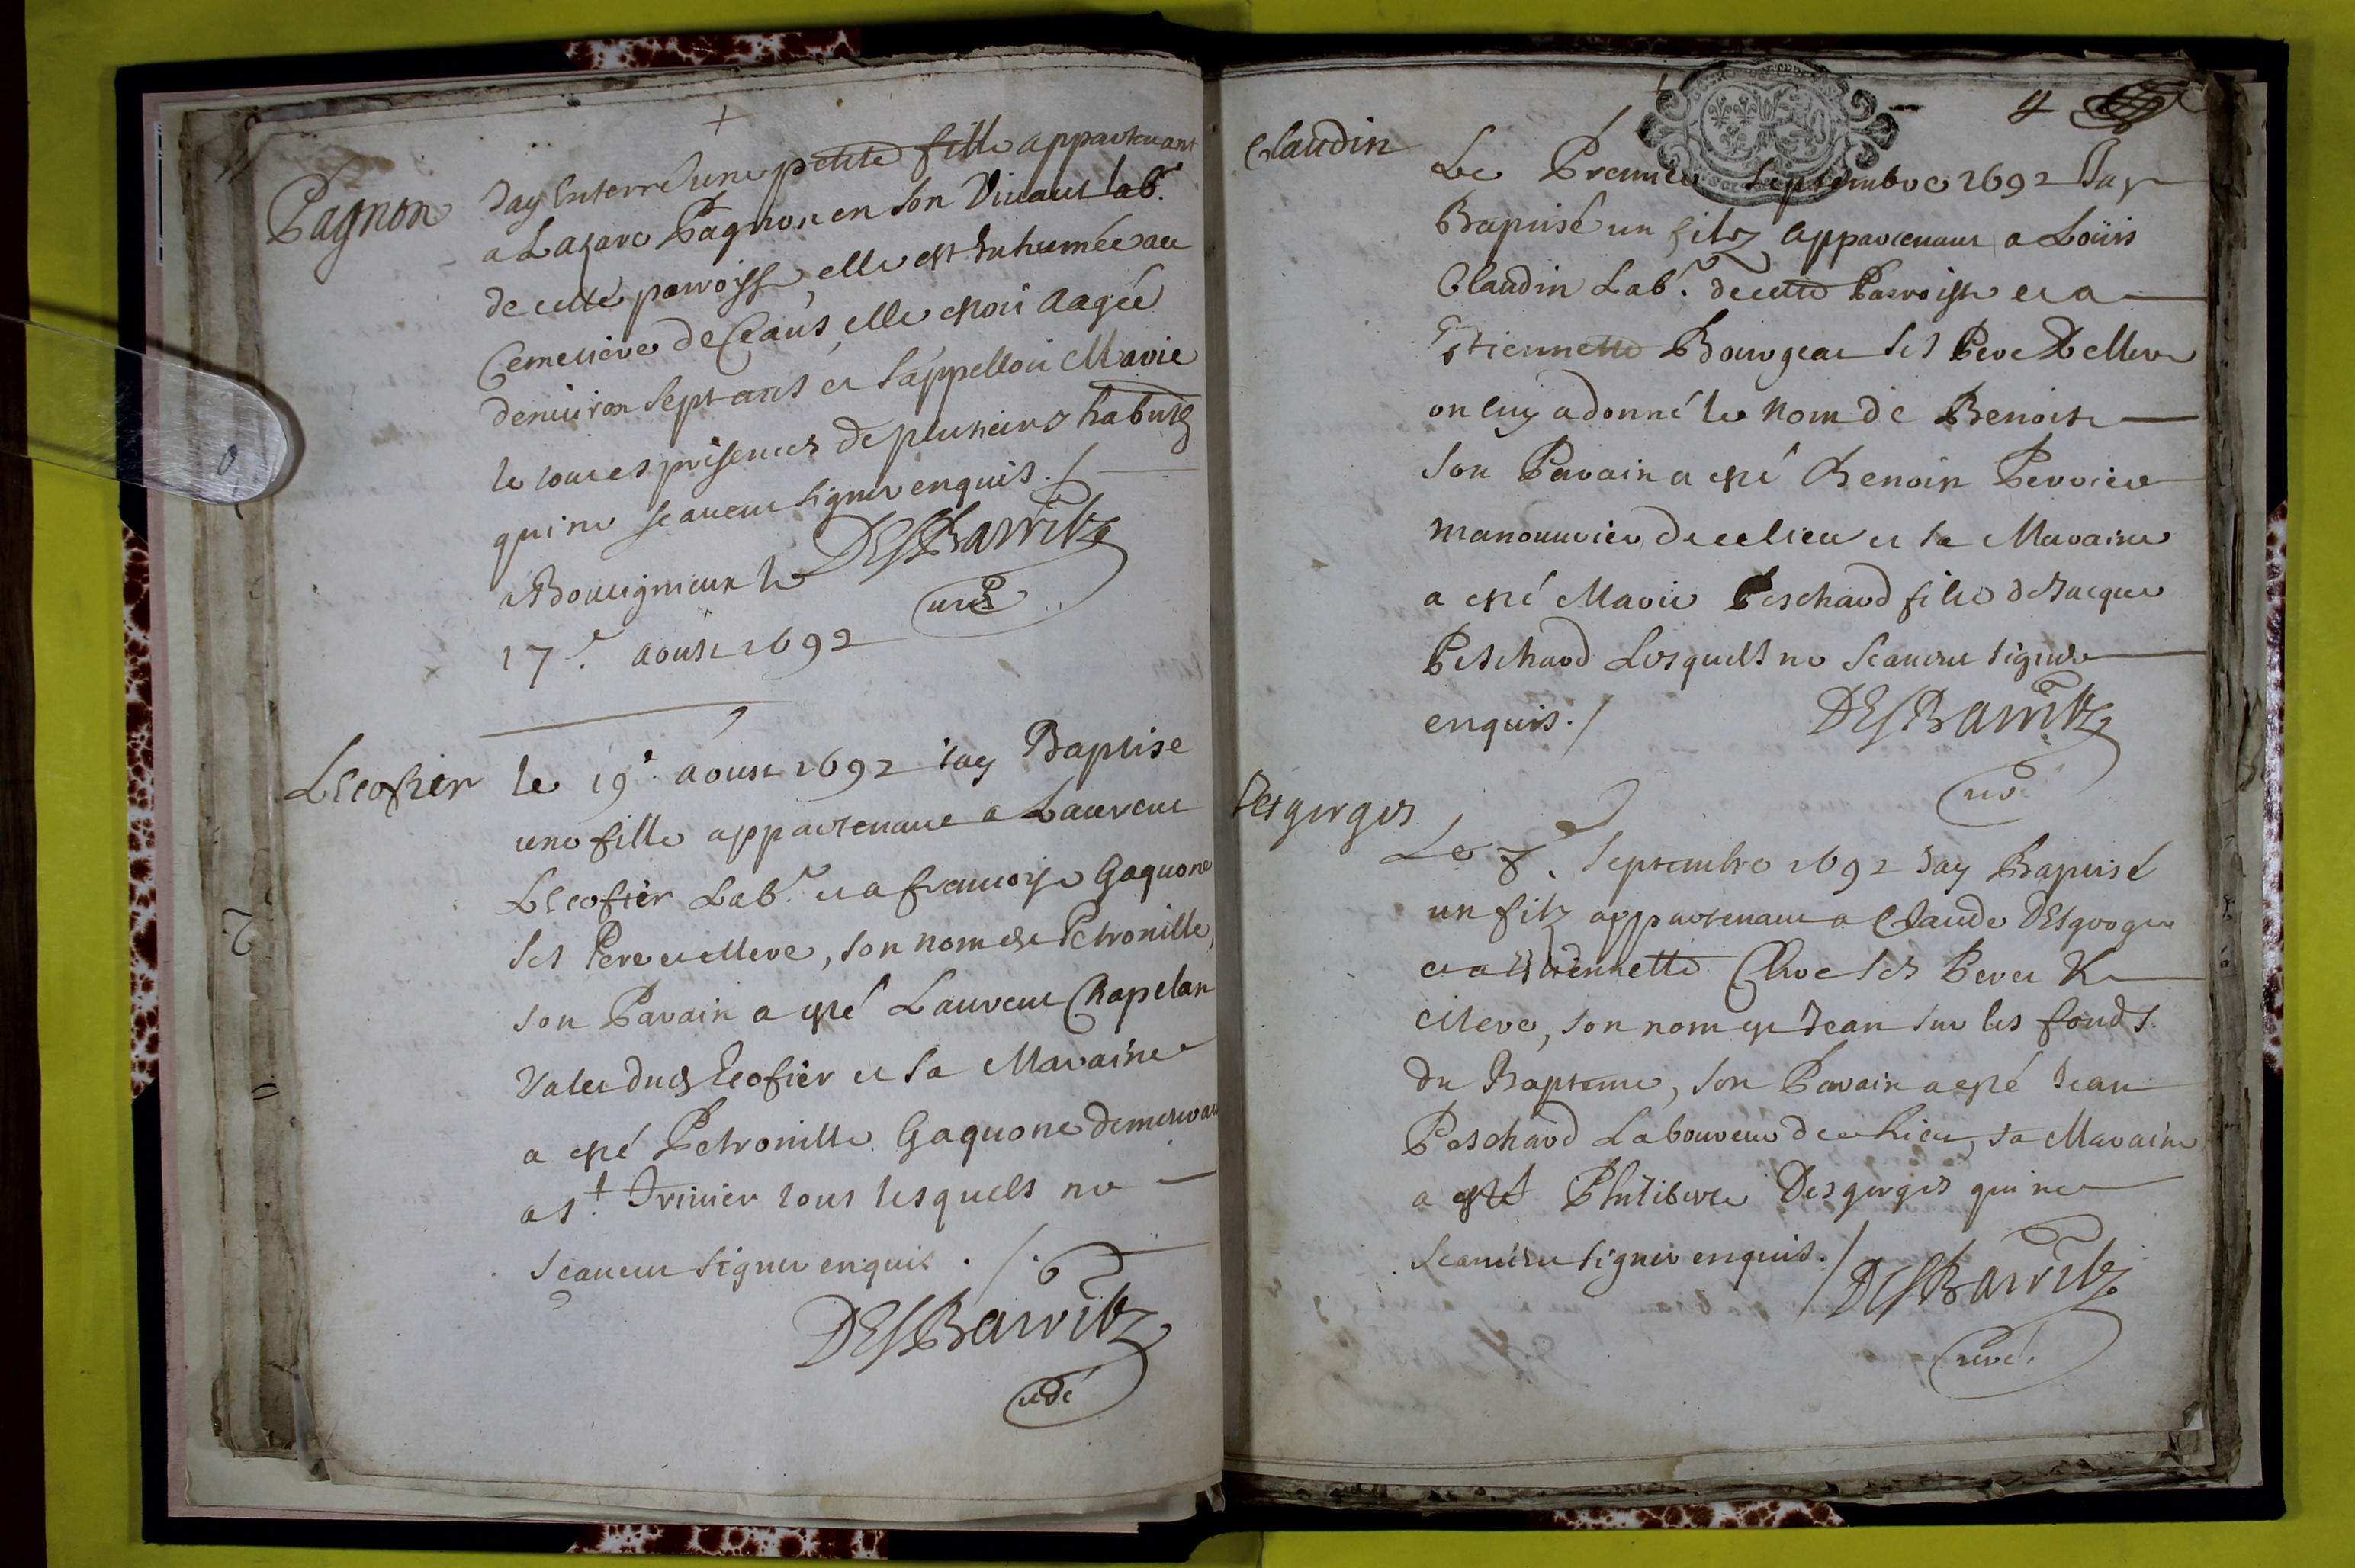 Pagnon
Jay Enterré une petite fille appartenant
a Lazare Pagnon en son Vivant lab.r
de cette parroisse, elle est Inhumée au
Cemetiere de Ceans, elle estoit aagée
denuiron sept ans et s'appelloit Marie
le tout es presences de plusieurs habitz
qui ne scauent signer enquis ./
a Bouligneux le DESBarritz
17.e aoust 1692 curé
LEcofier
le 19.e aoust 1692 iay Baptise
une fille appartenant a Laurent
LEcofier Lab.r et a francoise Gaquone
ses Pere et Mere, son nom est Petronille,
son Parain a esté Laurent Chapelan
Valet dud Ecofier et sa Maraine
a esté Petronille Gaquone demeurant
a s.t Triuier tous lesquels ne
scauent signer enquis ./.
DESBarritz
curé
4
Claudin
Le Premier Septembre 1692 Jay
Baptisé un filz appartenant a Loüis
Claudin Lab.r de cette Parroisse et a
Estiennette Bourgeat ses Pere & Mere
on luy a donné le nom de Benoist
son Parain a esté Benoist Perriere
manouurier de ce lieu et sa Maraine
a esté Marie Peschard fille de Jacque
Peschard Lesquels ne scauent signer
enquis ./ DESBarritz
curé
Desgerges
Le 7.e Septembre 1692 Jay Baptisé
un filz appartenant a Claude DEsgorges
et a Estiennette ses Pere &
Mere, son nom est Jean sur les fonds
du Baptesme, son Parain a esté Jean
Peschard Laboureur de ce lieu, sa Maraine
a esté Philiberte Desgerges qui ne
scauent signer enquis ./ DESBarritz
curé.